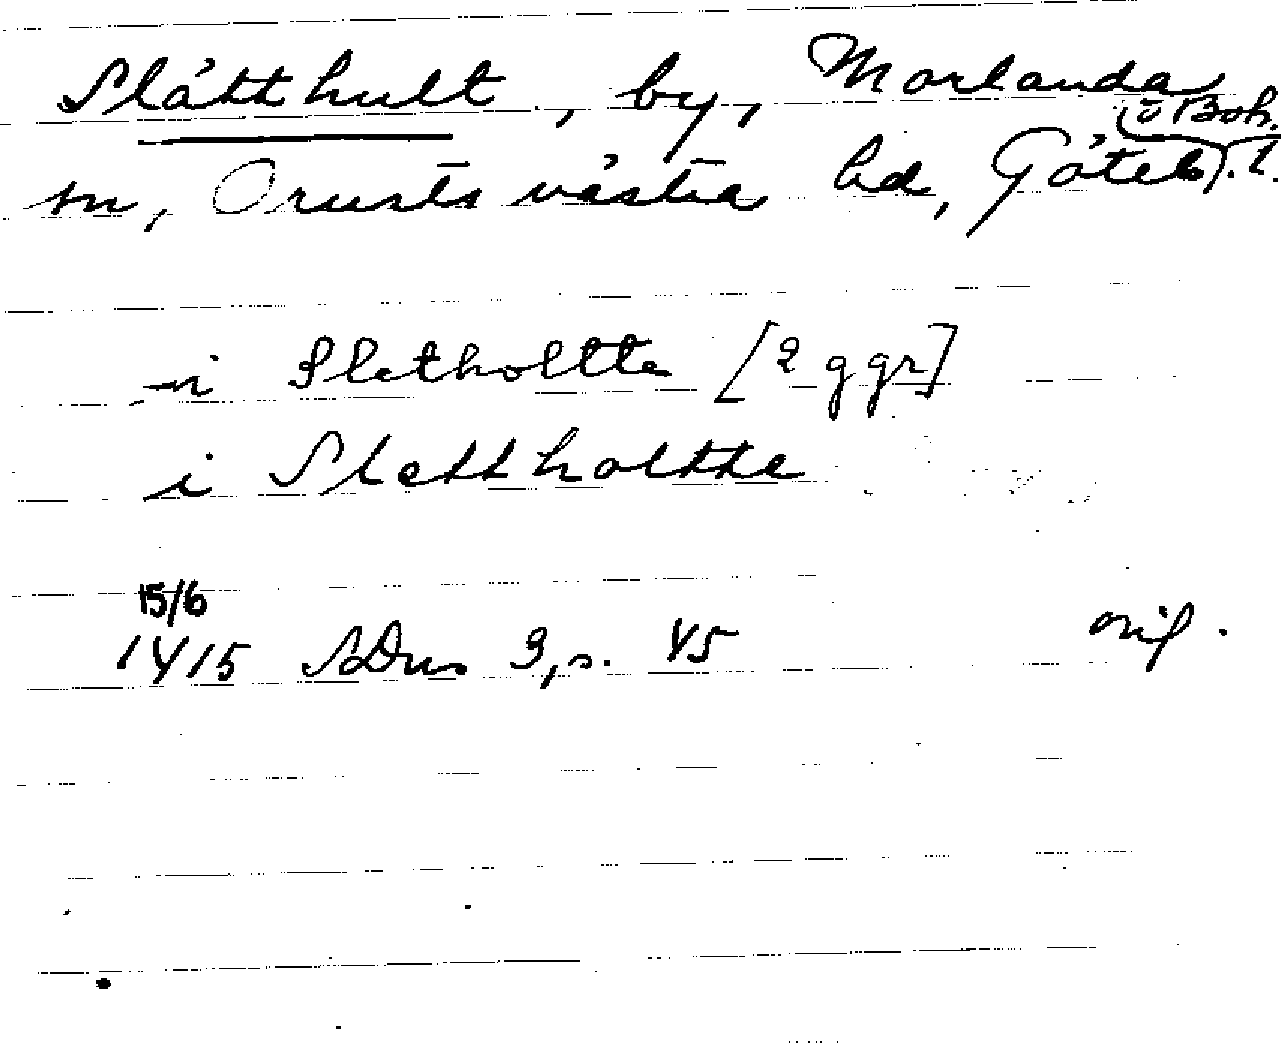 Slätthult, by, Morlanda
sn, Orusts västra hd, Göteb. o Boh. l.
i Sletholtte [2 ggr]
i Slettholtte
15/6
1415 SDns 3, s. 45 orig.